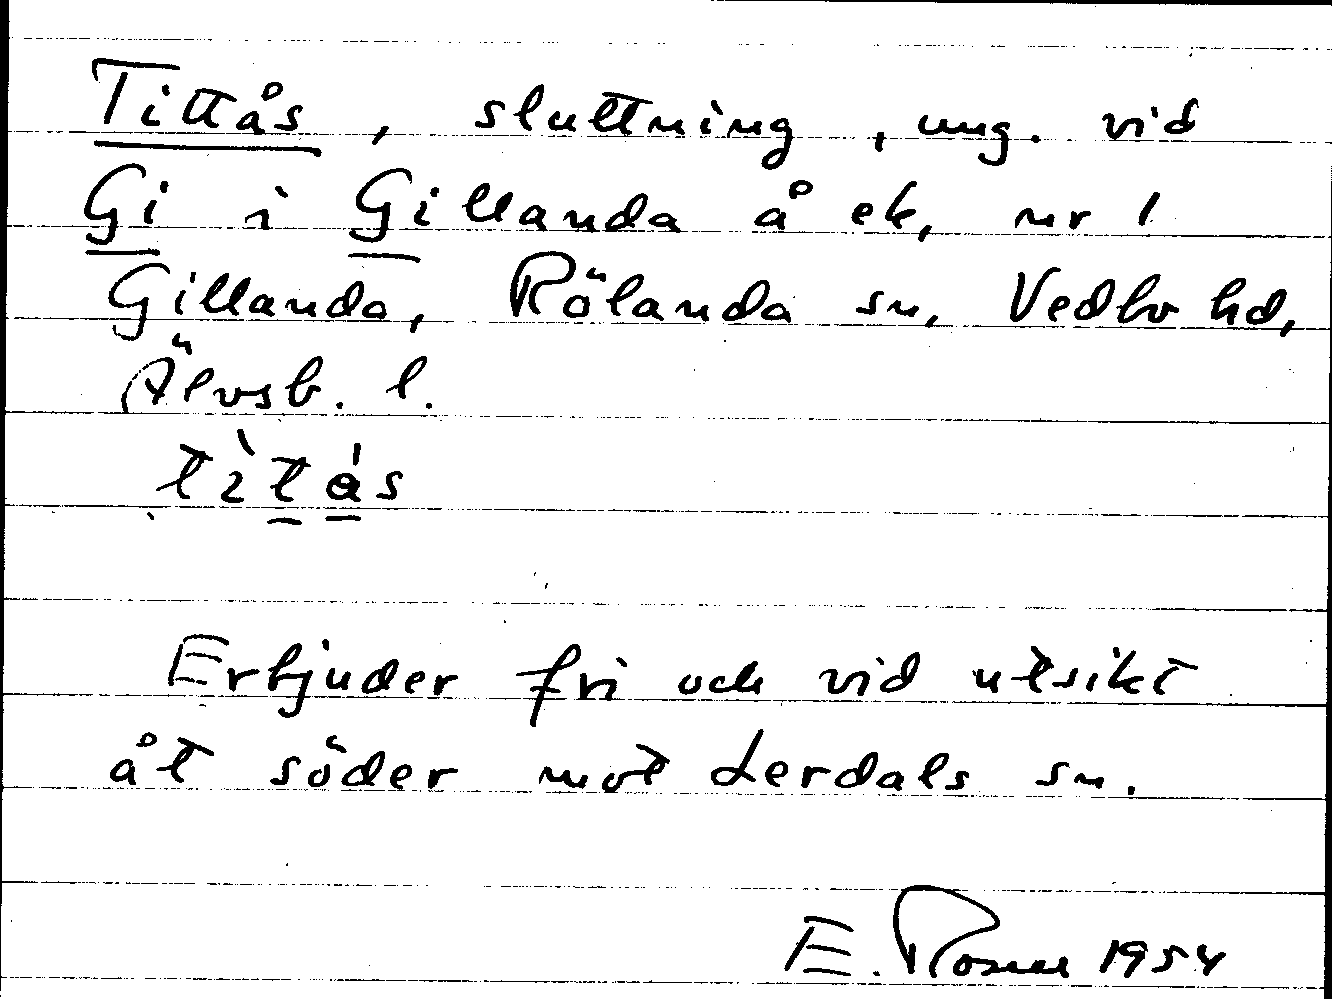 Tittås, sluttning, ung. vid
Gi i Gillanda å ek, nr 1
Gillanda, Rölanda sn, Vedbo hd,
Älvsb. l.
Erbjuder fri och vid utsikt
åt söder mot Lerdals sn.
E. 1954